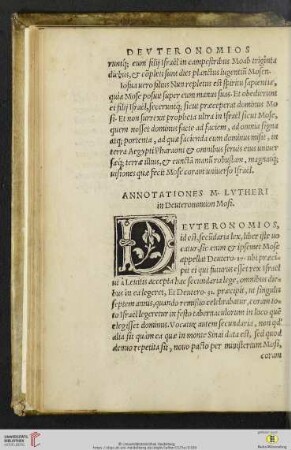 DEVTERONOMIOS
runtq́; eum filij Israël in campestribus Moab triginta
diebus, et cōpleti sunt dies planctus lugentiū Mosen.
Iosua uero filius Nun repletus est spiritu sapientiæ,
quia Mose posuit super eum manus suas. Et obedierunt
ei filij Israel, feceruntq́; sicut præceperat dominus Mo
si. Et non surrexit propheta ultra in Israel sicut Mose,
quem nosset dominus facie ad faciem, ad omnia signa
atq; portenta, ad quæ facienda eum dominus misit, in
terra Aegypti Pharaoni & omnibus seruis eius uniuer
sæq́; terræ illius, & cunctā manū robustam, magnasq́;
uisiones quæ fecit Mose coram uniuerso Israel.
ANNOTATIONES M. LVTHERI
in Deuteronomion Mosi.
DEVTERONOMIOS,
id est, secūdaria lex, liber iste uo
catur, sic enim & ipsemet Mose
appellat Deutero. 17. ubi præci
pit ei qui futurus esset rex Israel
ut à Leuitis accepta hac secundaria lege, omnibus die
bus in ea legeret, Et Deutero. 31. præcipit, ut singulis
septem annis, quando remissio celebrabatur, coram to
to Israel legeretur in festo tabernaculorum in loco quē
elegisset dominus. Vocatur autem secundaria, non qd'
alia sit quàm ea quæ in monte Sinai data est, sed quod
denuo repetita sit, nouo pacto per ministerium Mosi,
coram